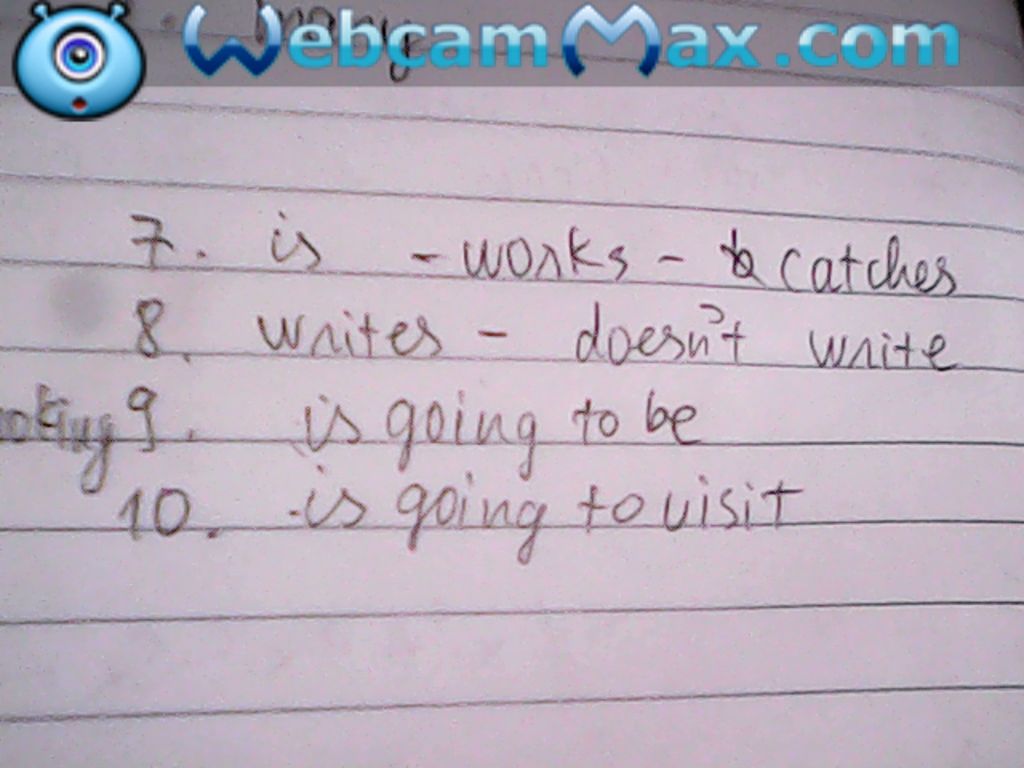 WebcamMax.com
many
7. is - works - catches
8. writes - doesn't write
9. is going to be
10. is going to visit